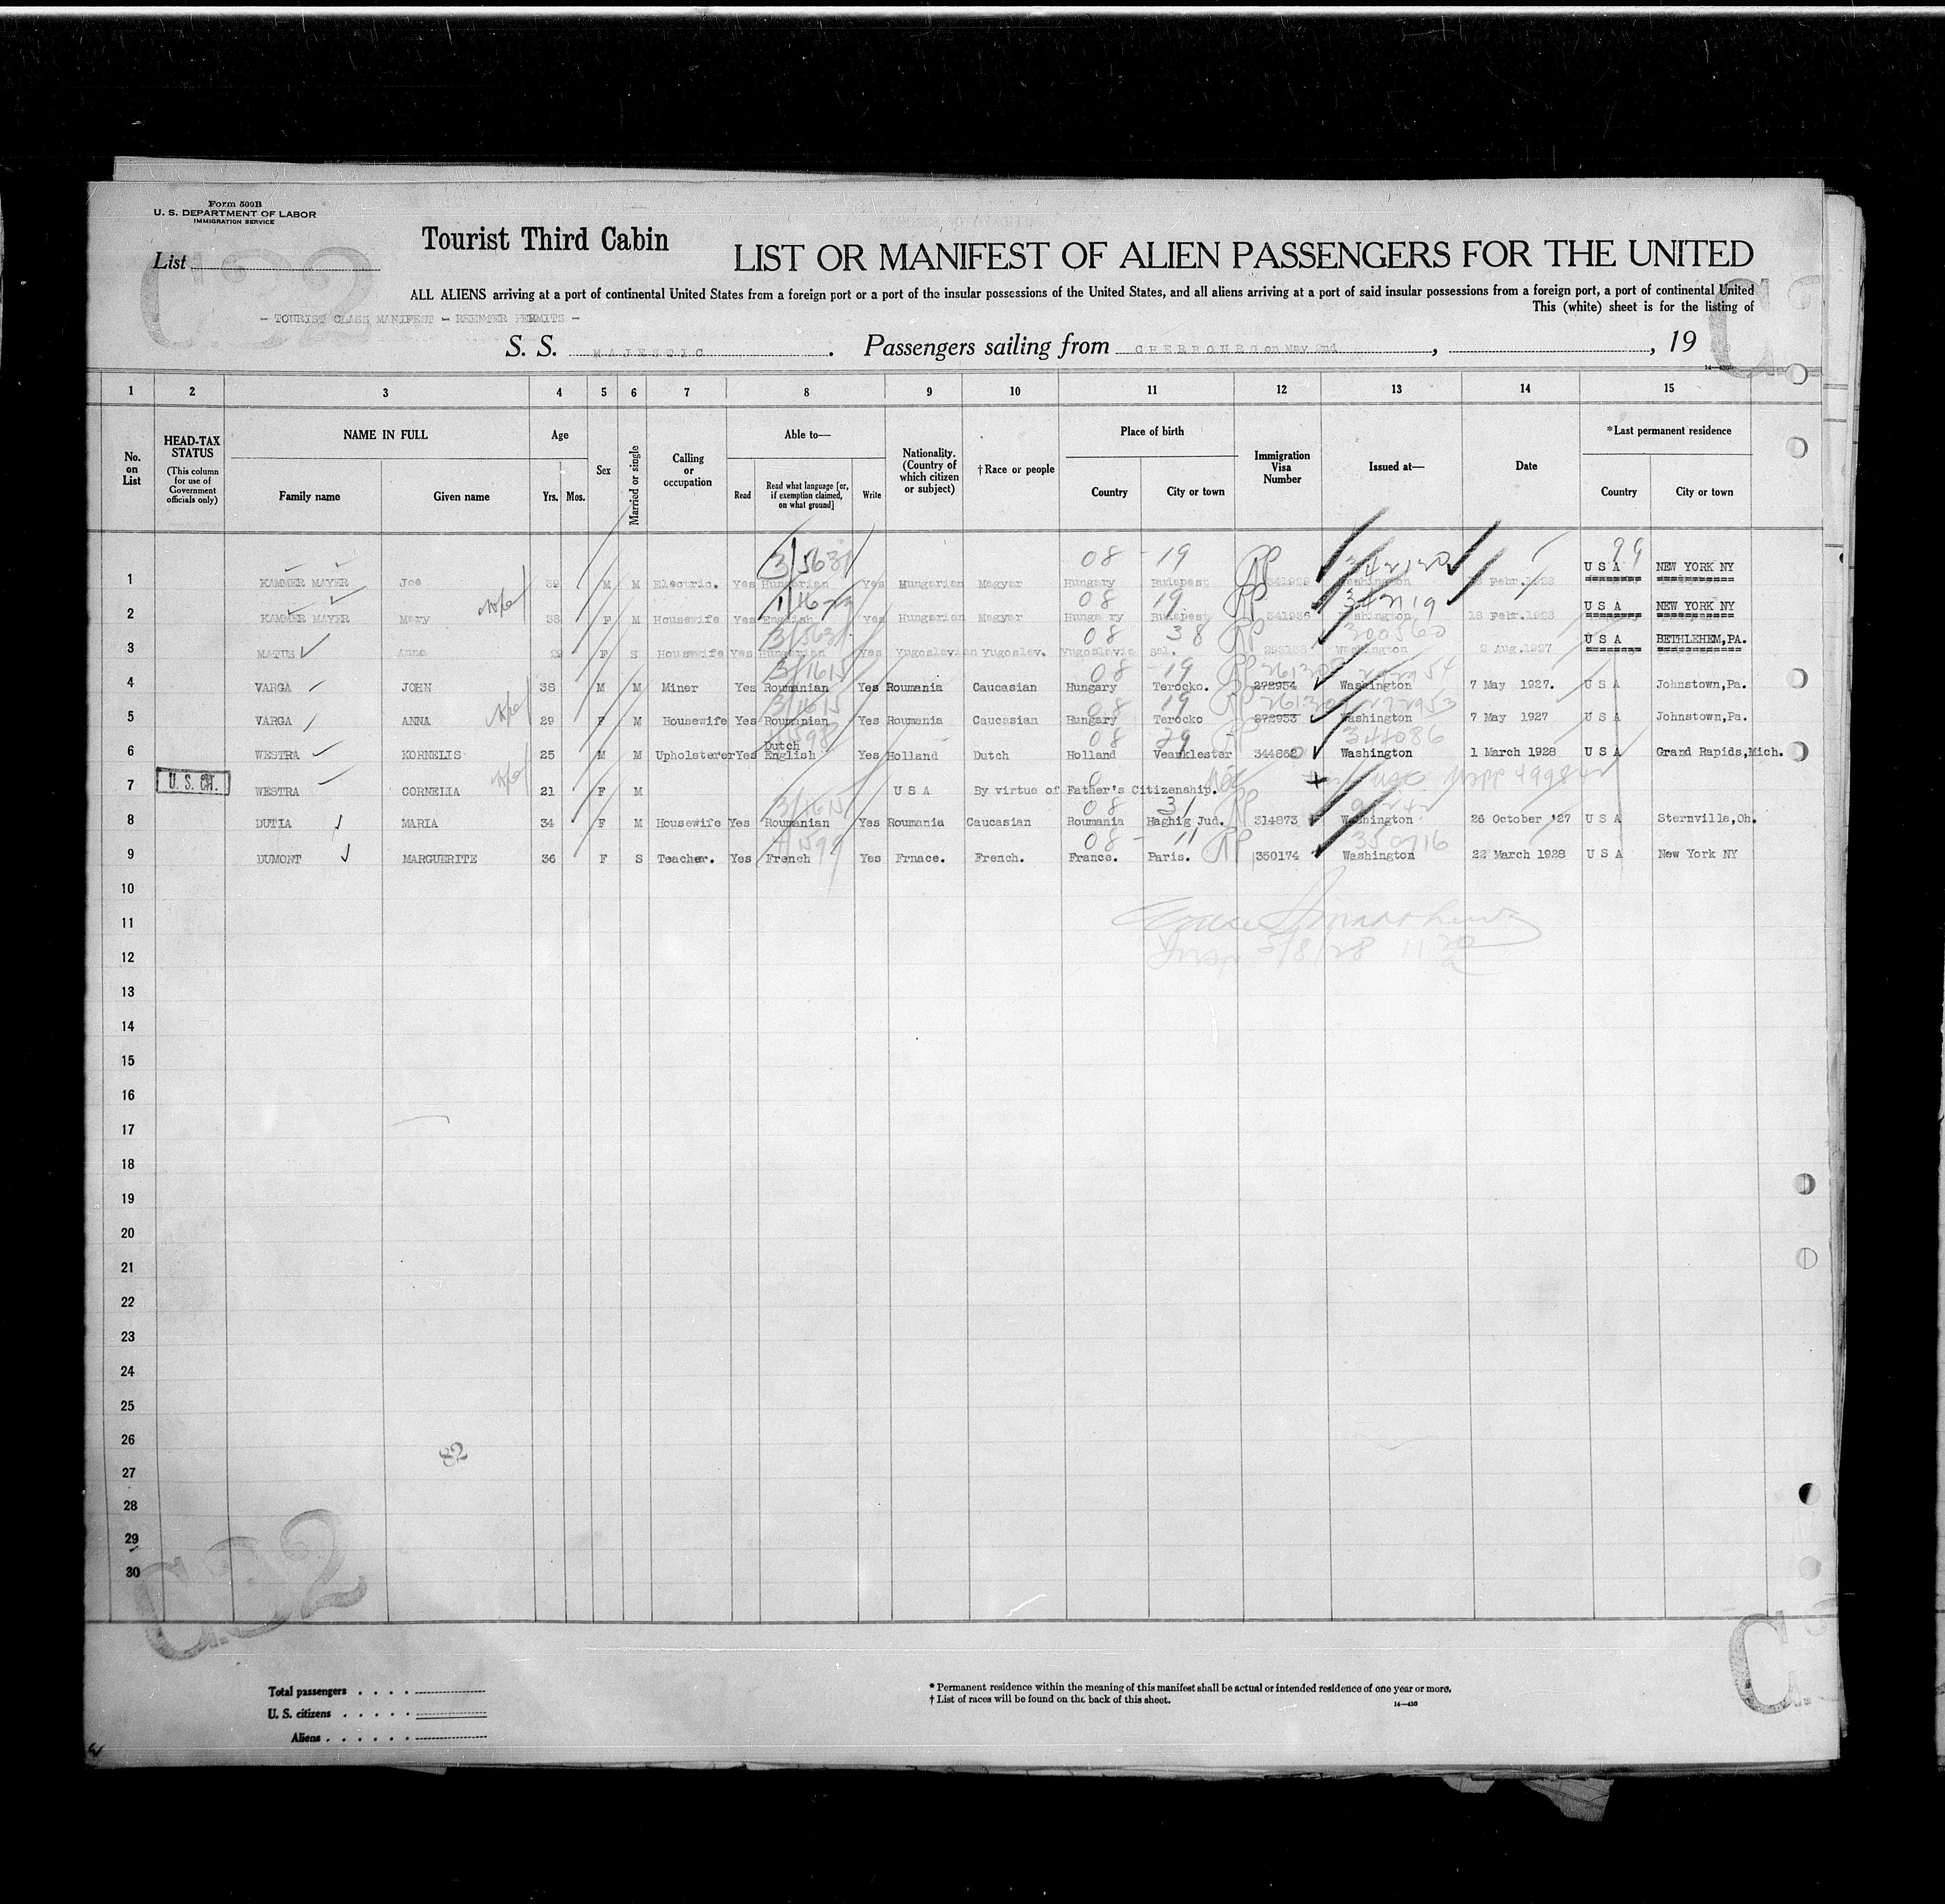 Form 500B
U. S. DEPARTMENT OF LABOR
IMMIGRATION SERVICE
List
Tourist Third Cabin
LIST OR MANIFEST OF ALIEN PASSENGERS FOR THE UNITED
ALL ALIENS arriving at a port of continental United States from a foreign port or a port of the insular possessions of the United States, and all aliens arriving at a port of said insular possessions from a foreign port, a port of continental United
This (white) sheet is for the listing of
- TOURIST CLASS MANIFEST - REENTER PERMITS -
S. S. MAJESTIC. Passengers sailing from CHERBOURG on May 2nd, , 19
1 2 3 4 5 6 7 8 9 10 11 12 13 14 15
No. on List
HEAD-TAX STATUS (This column for use of Government officials only)
NAME IN FULL
Family name Given name
Age
Yrs. Mos.
Sex
Married or single
Calling or occupation
Able to—
Read Read what language [or, if exemption claimed, on what ground] Write
Nationality. (Country of which citizen or subject)
†Race or people
Place of birth
Country City or town
Immigration Visa Number
Issued at—
Date
*Last permanent residence
Country City or town
08 - 19
1 KAMMER MAYER Joe 39 M M Electric. Yes Hungarian Yes Hungarian Magyar Hungary Budapest Washington Febr.1928 U S A NEW YORK NY
08 19
2 KAMMER MAYER Mary 38 F M Housewife Yes English Yes Hungarian Magyar Hungary Budapest 341936 Washington 18 Febr.1928 U S A NEW YORK NY
08 38
3 MATUS Anna 29 F S Housewife Yes Hungarian Yes Yugoslavian Yugoslav. Yugoslavia Sal. Washington 2 Aug.1927 U S A BETHLEHEM,PA.
08 - 19
4 VARGA JOHN 38 M M Miner Yes Roumanian Yes Roumania Caucasian Hungary Terocko. 272954 Washington 7 May 1927. U S A Johnstown,Pa.
08 19
5 VARGA ANNA 29 F M Housewife Yes Roumanian Yes Roumania Caucasian Hungary Terocko 272953 Washington 7 May 1927 U S A Johnstown,Pa.
08 29 344086
6 WESTRA KORNELIS 25 M M Upholsterer Yes Dutch English Yes Holland Dutch Holland Veanklester 344862 Washington 1 March 1928 U S A Grand Rapids,Mich.
U. S. CIT.
7 WESTRA CORNELIA 21 F M U S A By virtue of Father's Citizenship.
08 31
8 DUTIA MARIA 34 F M Housewife Yes Roumanian Yes Roumania Caucasian Roumania Haghig Jud. 314873 Washington 26 October '27 U S A Sternville,Oh.
08 - 11 350716
9 DUMONT MARGUERITE 36 F S Teacher. Yes French Yes Frnace. French. France. Paris. 350174 Washington 22 March 1928 U S A New York NY
10
11
12 5/8/28
13
14
15
16
17
18
19
20
21
22
23
24
25
26
82
27
28
29
30
Total passengers
U. S. citizens
Aliens
* Permanent residence within the meaning of this manifest shall be actual or intended residence of one year or more.
† List of races will be found on the back of this sheet.
14—430